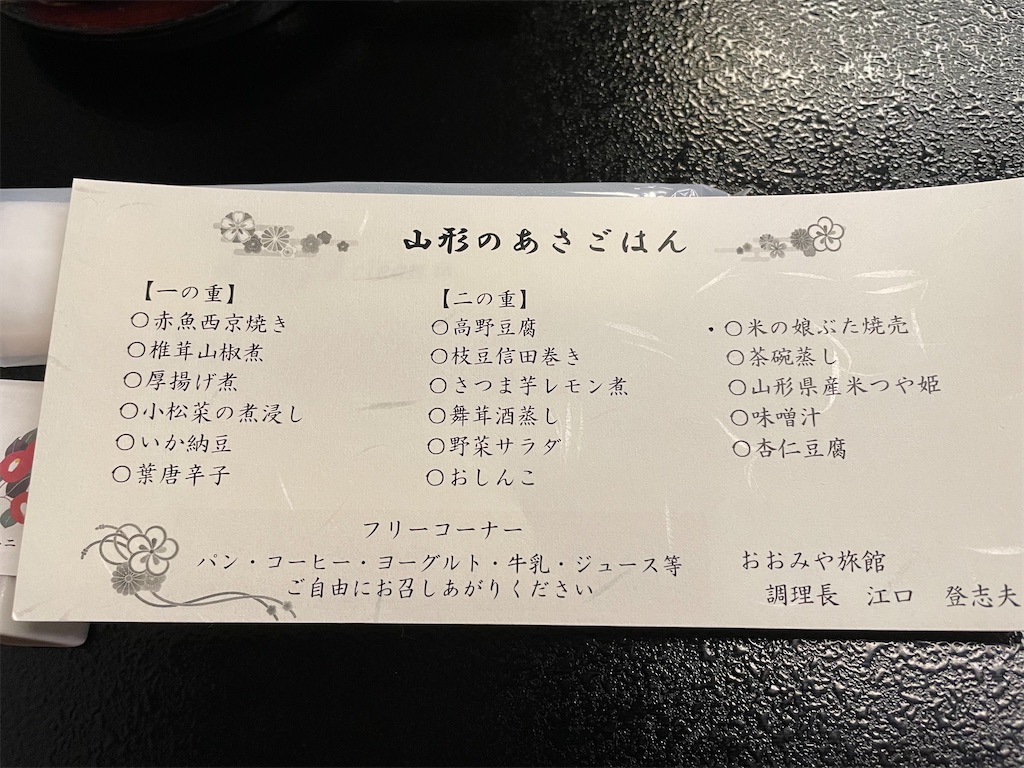 山形のあさごはん
【一の重】
○赤魚西京焼き
○椎茸山椒煮
○厚揚げ煮
○小松菜の煮浸し
○いか納豆
○葉唐辛子
【二の重】
○高野豆腐
○枝豆信田巻き
○さつま芋レモン煮
○舞茸酒蒸し
○野菜サラダ
○おしんこ
・○米の娘ぶた焼売
○茶碗蒸し
○山形県産米つや姫
○味噌汁
○杏仁豆腐
フリーコーナー
パン・コーヒー・ヨーグルト・牛乳・ジュース等
ご自由にお召しあがりください
おおみや旅館
調理長 江口 登志夫